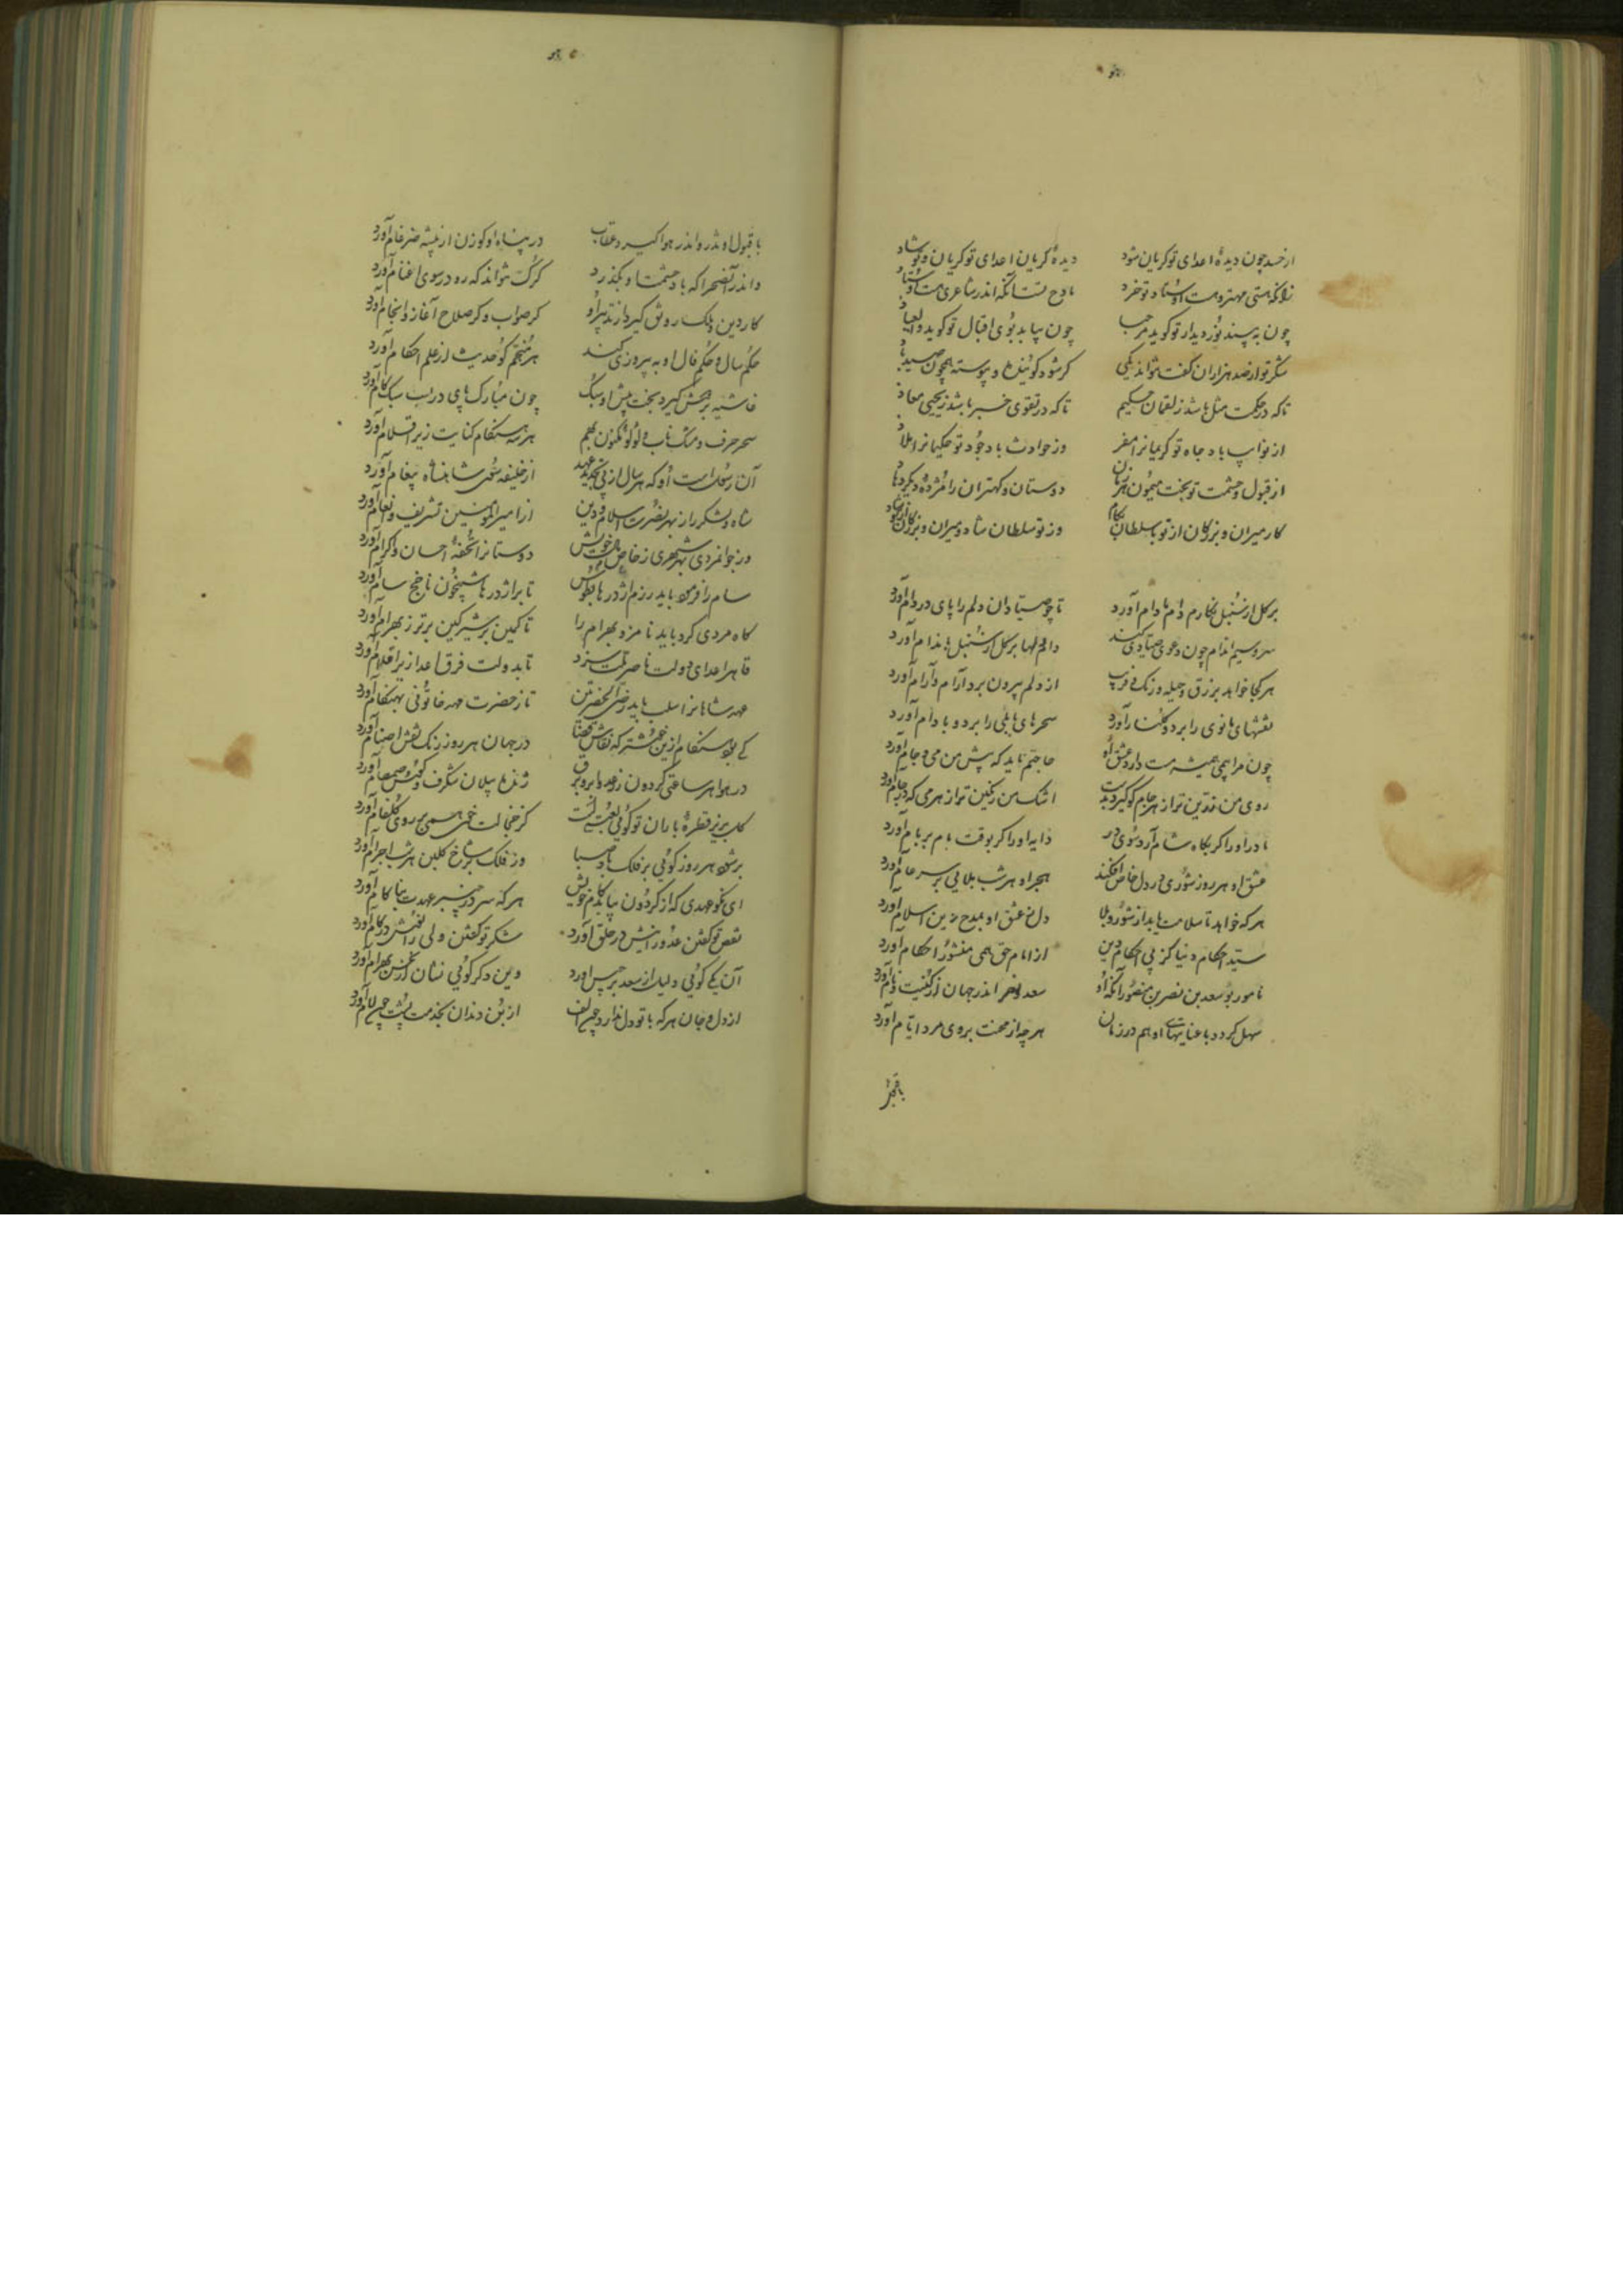 از حسد چون دیدهٔ اعدای تو گریان شود دیدهٔ گریان اعدای تو گریان و تو شاد
زانکه هستی مهتر و هست اوستاد تو خرد مادح تست آنکه اندر شاعری هست اوستاد
چون به بیند نور دیدار تو گوید مرحبا چون بیابد بوی اقبال تو گوید
شکر تو از صد هزاران گفت نتواند یکی گر شود گوینده و پیوسته همچون
تا که در حکمت مثل باشد ز لقمان حکیم تا که در تقوی خبر باشد ز یحیی معاذ
از نوایب باد جاه تو کریمانرا مفر وز حوادث باد جود تو حکیمانرا ملاذ
از قبول و حشمت تو بخت میمون هر زمان دوستان و کهتران را مژده دیگر دهاد
کار میران و بزرگان از تو با سلطان بکام وز تو سلطان شاد و میران و بزرگان
بر گل از سنبل نگارم دام ها دام آورد تا چو صیادان دلم را پای در دام آورد
سرو سیم اندام چون دعوی صیادی کند دام دلها بر گل از سنبل باندام آورد
هر کجا خواهد بزرق و حیله و رنگ و فریب از دلم بیرون برد آرام و آرام آورد
نقشهای مانوی را بر دو گلنار آورد سحرهای بابلی را بر دو بادام آورد
چون مرا بی می همیشه مست دارد عشق او حاجتم ناید که پیش من می و جام آورد
روی من زرین تر از هر جام کو گیرد بدست اشک من رنگین تر از هر می که در جام آورد
مادر او را گر بگاه شام آرد سوی در دایه او را گر بوقت بام بر بام آورد
عشق او هر روز شوری در دل خاص افکند هجر او هر شب بلایی بر سر عام آورد
هر که خواهد تا سلامت یابد از شور و بلا دل ز عشق او بمدح زین اسلام آورد
سید احکام دنیا کز پی احکام دین از امام حق همی منشور احکام آورد
نامور بو سعد بن نصر بن منصور آنکه او سعد و نصر اندر جهان از کنیت و نام آورد
سهل گردد با عنایتهای او هم در زمان هر چه از محنت بروی مرد ایام آورد
با قبول
با قبول او تذرو اندر هوا گیرد عقاب در پناه او گوزن از بیشه ضرغام آورد
واندر آن صحرا که باد حشمت او بگذرد گرگ نتواند که رو در سوی اغنام آورد
کار دین و ملک رونق گیرد از تدبیر او گر صواب و گر صلاح آغاز و انجام آورد
حکم سال و حکم فال او به پیروزی کند هر منجم کو حدیث از علم احکام آورد
غاشیه بر دوش گیرد بخت پیش او سبک چون مبارک پای در اسب سبک گام آورد
سحر حرف و مشک ناب و لؤلؤ مکنون بهم هر سه هنگام کتابت زیر اقلام آورد
آن رسولست او که هر سال از پی تجدید عهد از خلیفه سوی شاهنشاه پیغام آورد
شاه و لشکر را ز بهر نصرت اسلام و دین از امیر المؤمنین تشریف و انعام آورد
وز جوانمردی بهر شهری ز خاص مال خویش دوستانرا تحفهٔ احسان و اکرام آورد
سام را فرمود باید رزم اژدرها بطوس تا بر اژدرها شبیخون ناخج سام آورد
گاه مردی کرد باید نامزد بهرام را تا کمین بر شیر کین برتر ز بهرام آورد
قاهر اعدای دولت ناصر ملت سزد تا بدولت فرق اعدا زیر اقدام آورد
عهد شاهانرا سبب باید رضی الحضرتین تا ز حضرت مهد خاتونی بهنگام آورد
کی بود هنگام ازین خوشتر که نقاش قضا در جهان هر روز رنگ نقش اصنام آورد
در هوا هر ساعتی گردون ز رعد و ابر و برق ژنده پیلان شگرف و کوس و صمصام آورد
گل بریزد قطرهٔ باران تو گویی لعبتیست کز خجالت خوی همی بر روی گلفام آورد
بر شود هر روز گویی بر فلک باد صبا وز فلک بر شاخ گلبن هر شب اجرام آورد
ای نکو عهدی که از گردون بیابد کام خویش هر که سر در چنبر عهدت بناکام آورد
نقص تو گفتن عدو را نیش در حلق آورد شکر تو گفتن ولی را نوش در کام آورد
آن یکی گویی دلیل از سعد برجیس آورد وین دگر گویی نشان از نحس بهرام آورد
از دل و جان هر که با تو دل ندارد چون الف از بن دندان بخدمت پشت چون لام آورد